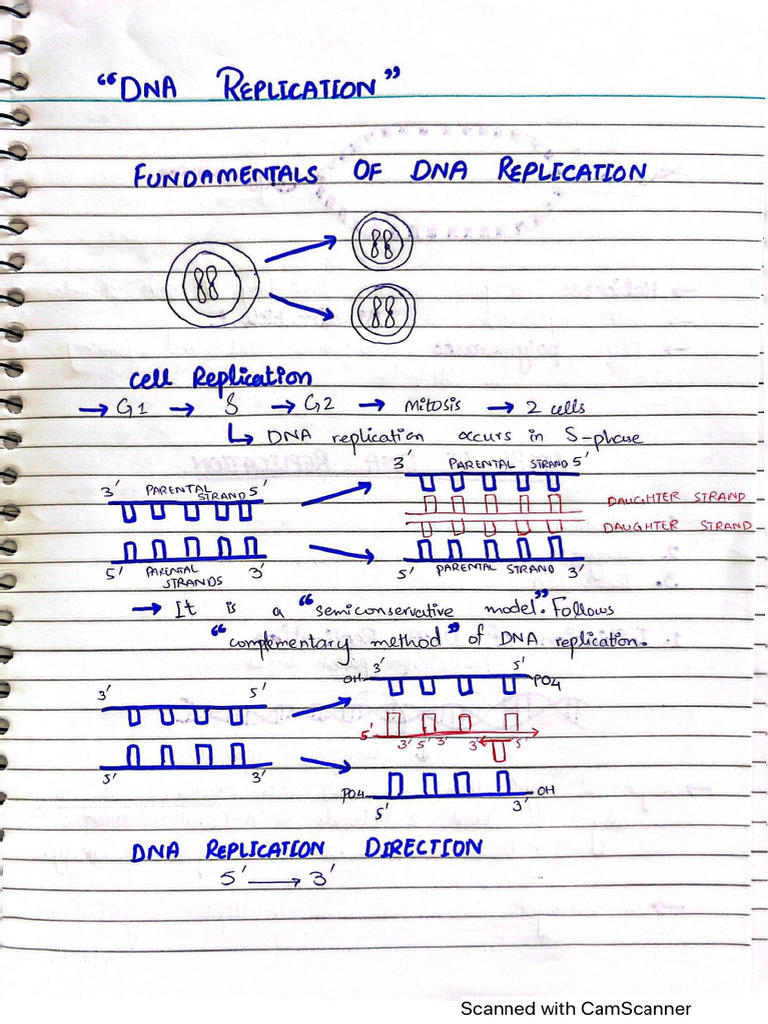 “DNA REPLICATION”
FUNDAMENTALS OF DNA REPLICATION
cell Replication
→ G1 → S → G2 → Mitosis → 2 cells
↳ DNA replication occurs in S-phase
3' PARENTAL STRAND 5'
3' PARENTAL STRAND 5'
DAUGHTER STRAND
DAUGHTER STRAND
5' PARENTAL STRANDS 3'
5' PARENTAL STRAND 3'
→ It is a “semiconservative model”. Follows
“complementary method” of DNA replication.
3' 5'
OH 3' 5' PO4
5' 3' 5' 3' 3' 5'
5' 3'
PO4 5' 3' OH
DNA REPLICATION DIRECTION
5' → 3'
Scanned with CamScanner